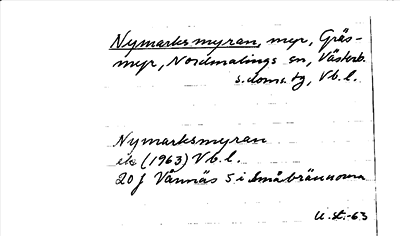 Nymarksmyran, myr, Gräs-
myr, Nordmalings sn, Västerb.
s. doms. tg, Vb. l.
Nymarksmyran
ek (1963) Vb. l.
20 J Vännäs 5 i Småbrännorna
U. St.-63